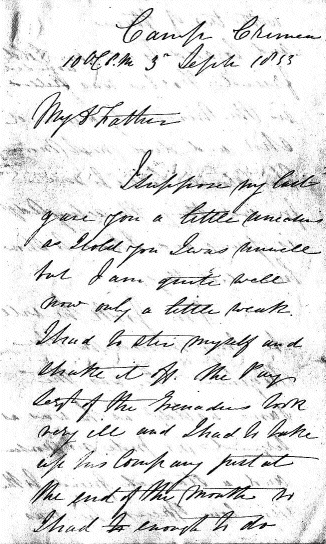 Camp Crimea
10 P.M 3rd Septr 1855
My d Father
I suppose my last
gave you a little uneasiness
as I told you I was unwell
but I am quite well
now only a little weak.
I had to stir myself and
shake it off. The Pay
of the Grenadiers took
very ill and I had to take
up his Company just at
the end of the Month so
I had to enough to do